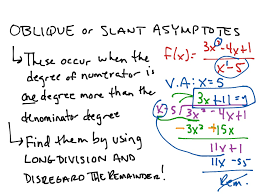 OBLIQUE or SLANT ASYMPTOTES
→ These occur when the
degree of numerator is
one degree more than the
denominator degree
→ Find them by using
LONG DIVISION AND
DISREGARD THE REMAINDER!
f(x)= 3x²-4x+1
x-5
V.A: x=5
3x+11=y
x-5 3x²-4x+1
-3x²+15x
11x+1
11x-55
Rem.